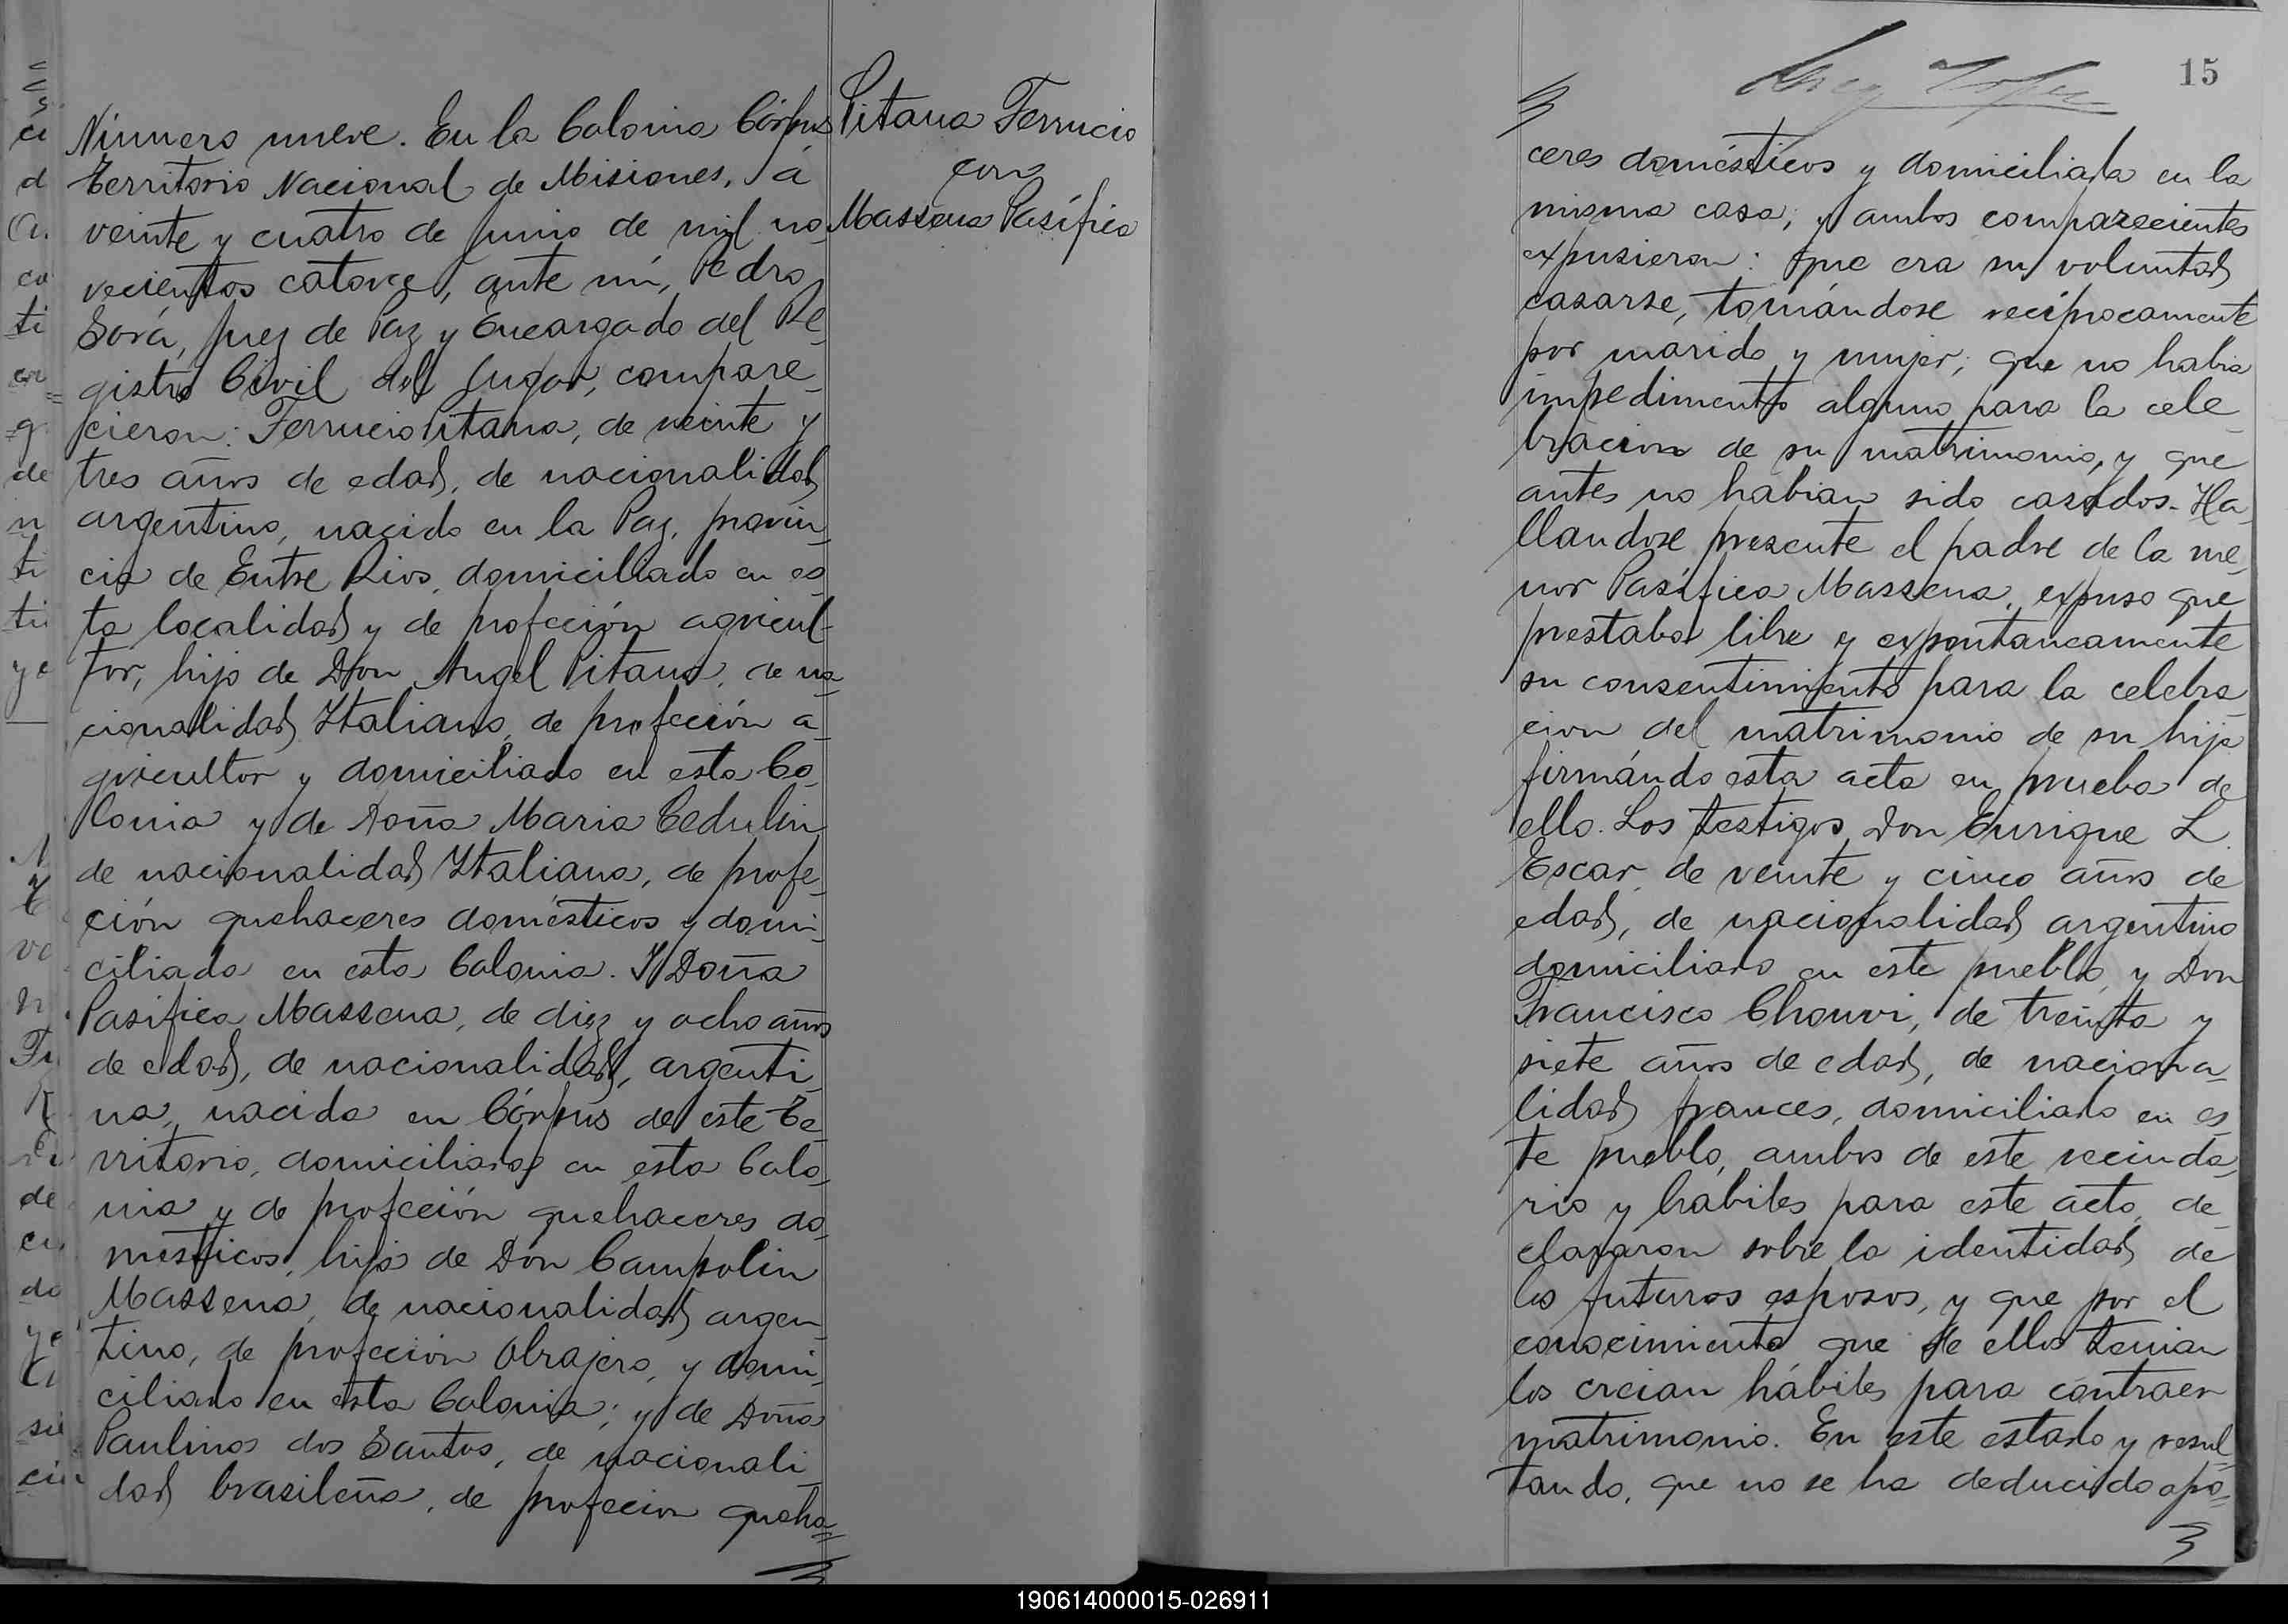 Número nueve. En la Colonia Córpus
Territorio Nacional de Misiones, á
veinte y cuatro de Junio de mil no_
vecientos catorce, ante mí, Pedro
Sorá, Juez de Paz y Encargado del Re_
gistro Civil del Lugar, compare_
cieron: Ferrucio Pitana, de veinte y
tres años de edad, de nacionalidad
argentino, nacido en la Paz, provin_
cia de Entre Rios, domiciliado en es_
ta localidad y de profeción agricul-
tor, hijo de Don Angel Pitana, de na_
cionalidad Italiano, de profeción a_
gricultor y domiciliado en esta Co_
lonia y de Doña Maria Cedulin
de nacionalidad Italiana, de profe_
ción quehaceres domésticos y domi_
ciliada en esta Colonia. Y Doña
Pasifica Massena, de diez y ocho años
de edad, de nacionalidad, argenti_
na, nacida en Córpus de este Te_
rritorio, domiciliada en esta Colo_
nia y de profeción quehaceres do_
mésticos, hija de Don Campolin
Massena, de nacionalidad argen_
tino, de profeción Obrajero, y domi_
ciliado en esta Colonia; y de Doña
Paulinos dos Santos, de nacionali_
dad brasileña, de profecion queha=
Pitana Ferrucio
con
Massena Pasífica
15
ceres domésticos y domiciliada en la
misma casa; y ambos comparecientes
expusieron: que era su voluntad
casarse, tomándose recíprocamente
por marido y mujer; que no habia
impedimento alguno para la cele_
bracion de su matrimonio, y que
antes no habian sido casados. Ha_
llandose presente el padre de la me_
nor Pasífica Massena, expuso que
prestaba libre y expontaneamente
su consentimiento para la celebra_
cion del matrimonio de su hija
firmándo esta acta en prueba de
ello. Los testigos, Don Enrique L.
Escar, de veinte y cinco años de
edad, de nacionalidad argentino
domiciliado en este pueblo, y Don
Francisco Chouvi, de treinta y
siete años de edad, de naciona_
lidad frances, domiciliado en es_
te pueblo, ambos de este vecinda_
rio y habiles para este acto, de_
claparon sobre la identidad de
los futuros esposos, y que por el
conocimiento que de ellos tenian
los creian hábiles para contraer
matrimonio. En este estado y resul_
tando, que no se ha deducido opo=
190614000015-026911